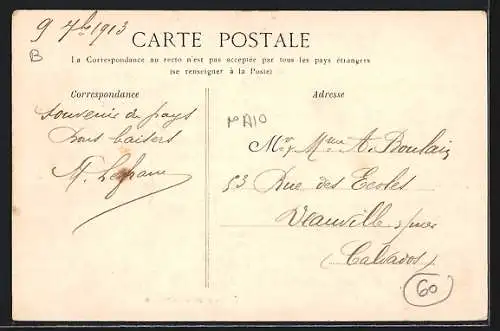 9 7bre 1913
B
CARTE POSTALE
La Correspondance au recto n'est pas acceptée par tous les pays étrangers
(se renseigner à la Poste)
Correspondance
Souvenir du pays
Bons baisers
Adresse
Mr & Mme A. Boulais
53 Rue des Ecoles
Deauville s/mer
(Calvados)
60